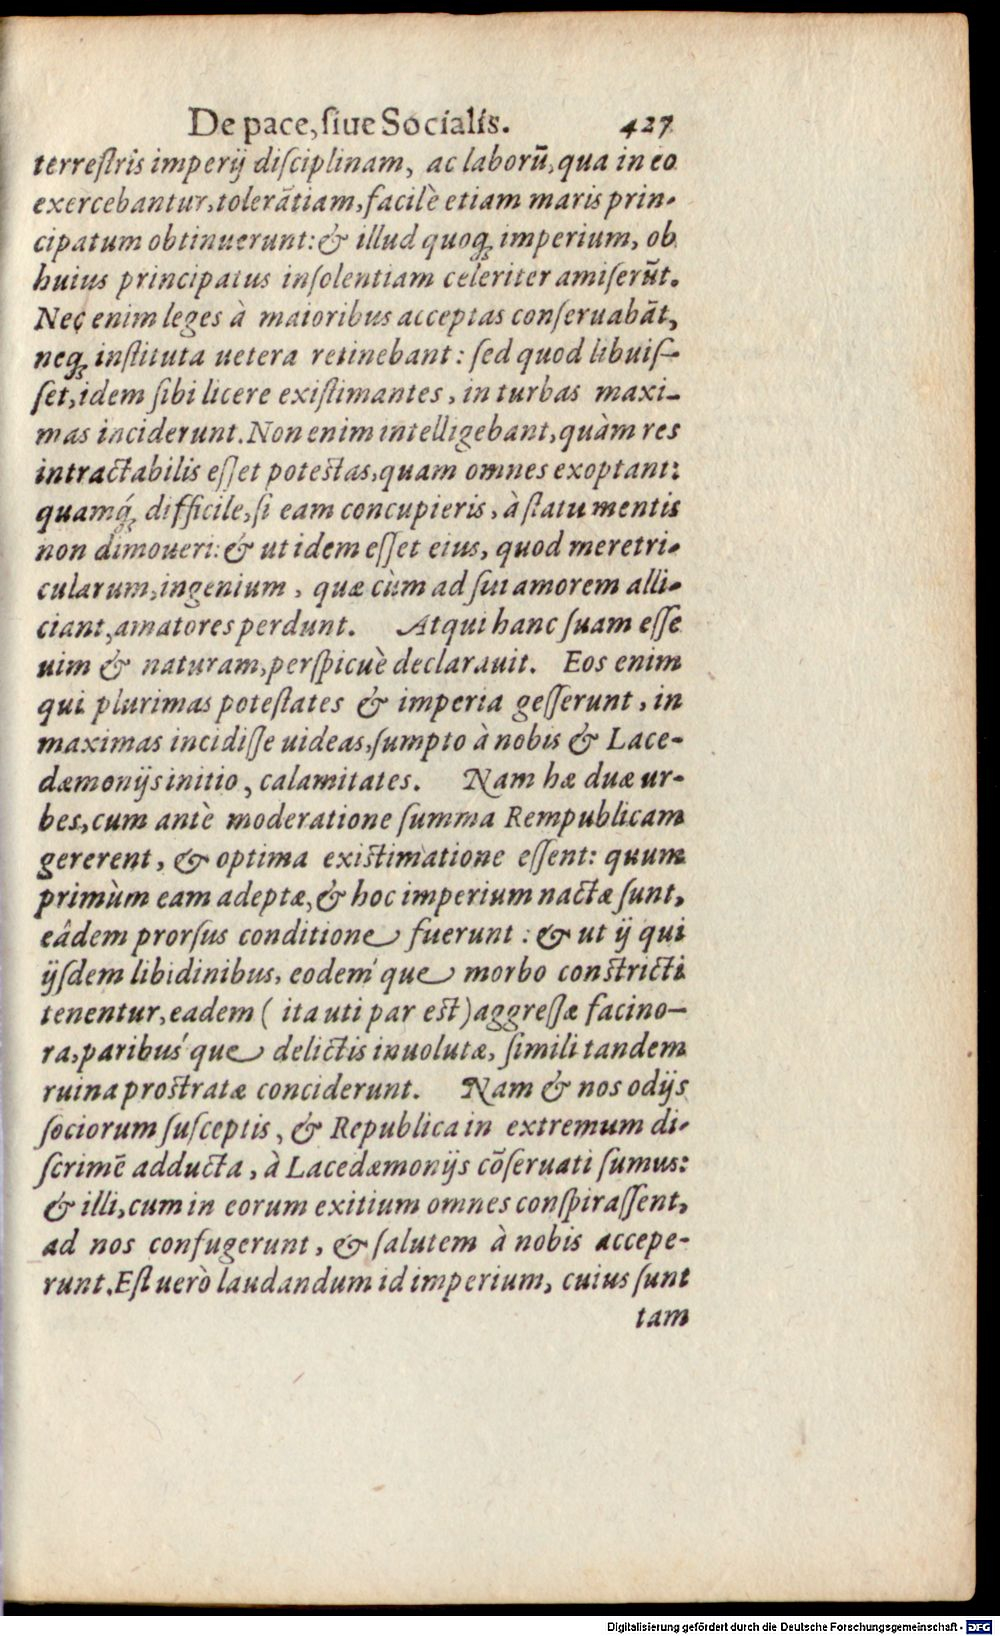 De pace, ſiue Socialis. 427
terreſtris imperij diſciplinam, ac laborū, qua in eo
exercebantur, tolerātiam, facilè etiam maris prin-
cipatum obtinuerunt: & illud quoq; imperium, ob
huius principatus inſolentiam celeriter amiſerūt.
Nec enim leges à maioribus acceptas conſeruabāt,
neq; inſtituta uetera retinebant: ſed quod libuiſ-
ſet, idem ſibi licere exiſtimantes, in turbas maxi-
mas inciderunt. Non enim intelligebant, quàm res
intractabilis eſſet poteſtas, quam omnes exoptant:
quamq́; difficile, ſi eam concupieris, à ſtatu mentis
non dimoueri: & ut idem eſſet eius, quod meretri-
cularum, ingenium, quæ cùm ad ſui amorem alli-
ciant, amatores perdunt. Atqui hanc ſuam eſſe
uim & naturam, perſpicuè declarauit. Eos enim
qui plurimas poteſtates & imperia geſſerunt, in
maximas incidiſſe uideas, ſumpto à nobis & Lace-
dæmonijs initio, calamitates. Nam hæ duæ ur-
bes, cum antè moderatione ſumma Rempublicam
gererent, & optima exiſtimatione eſſent: quum
primùm eam adeptæ, & hoc imperium nactæ ſunt,
eâdem prorſus conditione fuerunt: & ut ij qui
ijſdem libidinibus, eodeḿque morbo conſtricti
tenentur, eadem (ita uti par eſt) aggreſſæ facino-
ra, paribuś que delictis inuolutæ, ſimili tandem
ruina proſtratæ conciderunt. Nam & nos odijs
ſociorum ſuſceptis, & Republica in extremum di-
ſcrimē adducta, à Lacedæmonijs cōſeruati ſumus:
& illi, cum in eorum exitium omnes conſpiraſſent,
ad nos confugerunt, & ſalutem à nobis accepe-
runt. Eſt uerò laudandum id imperium, cuius ſunt
tam
Digitalisierung gefördert durch die Deutsche Forschungsgemeinschaft - DFG